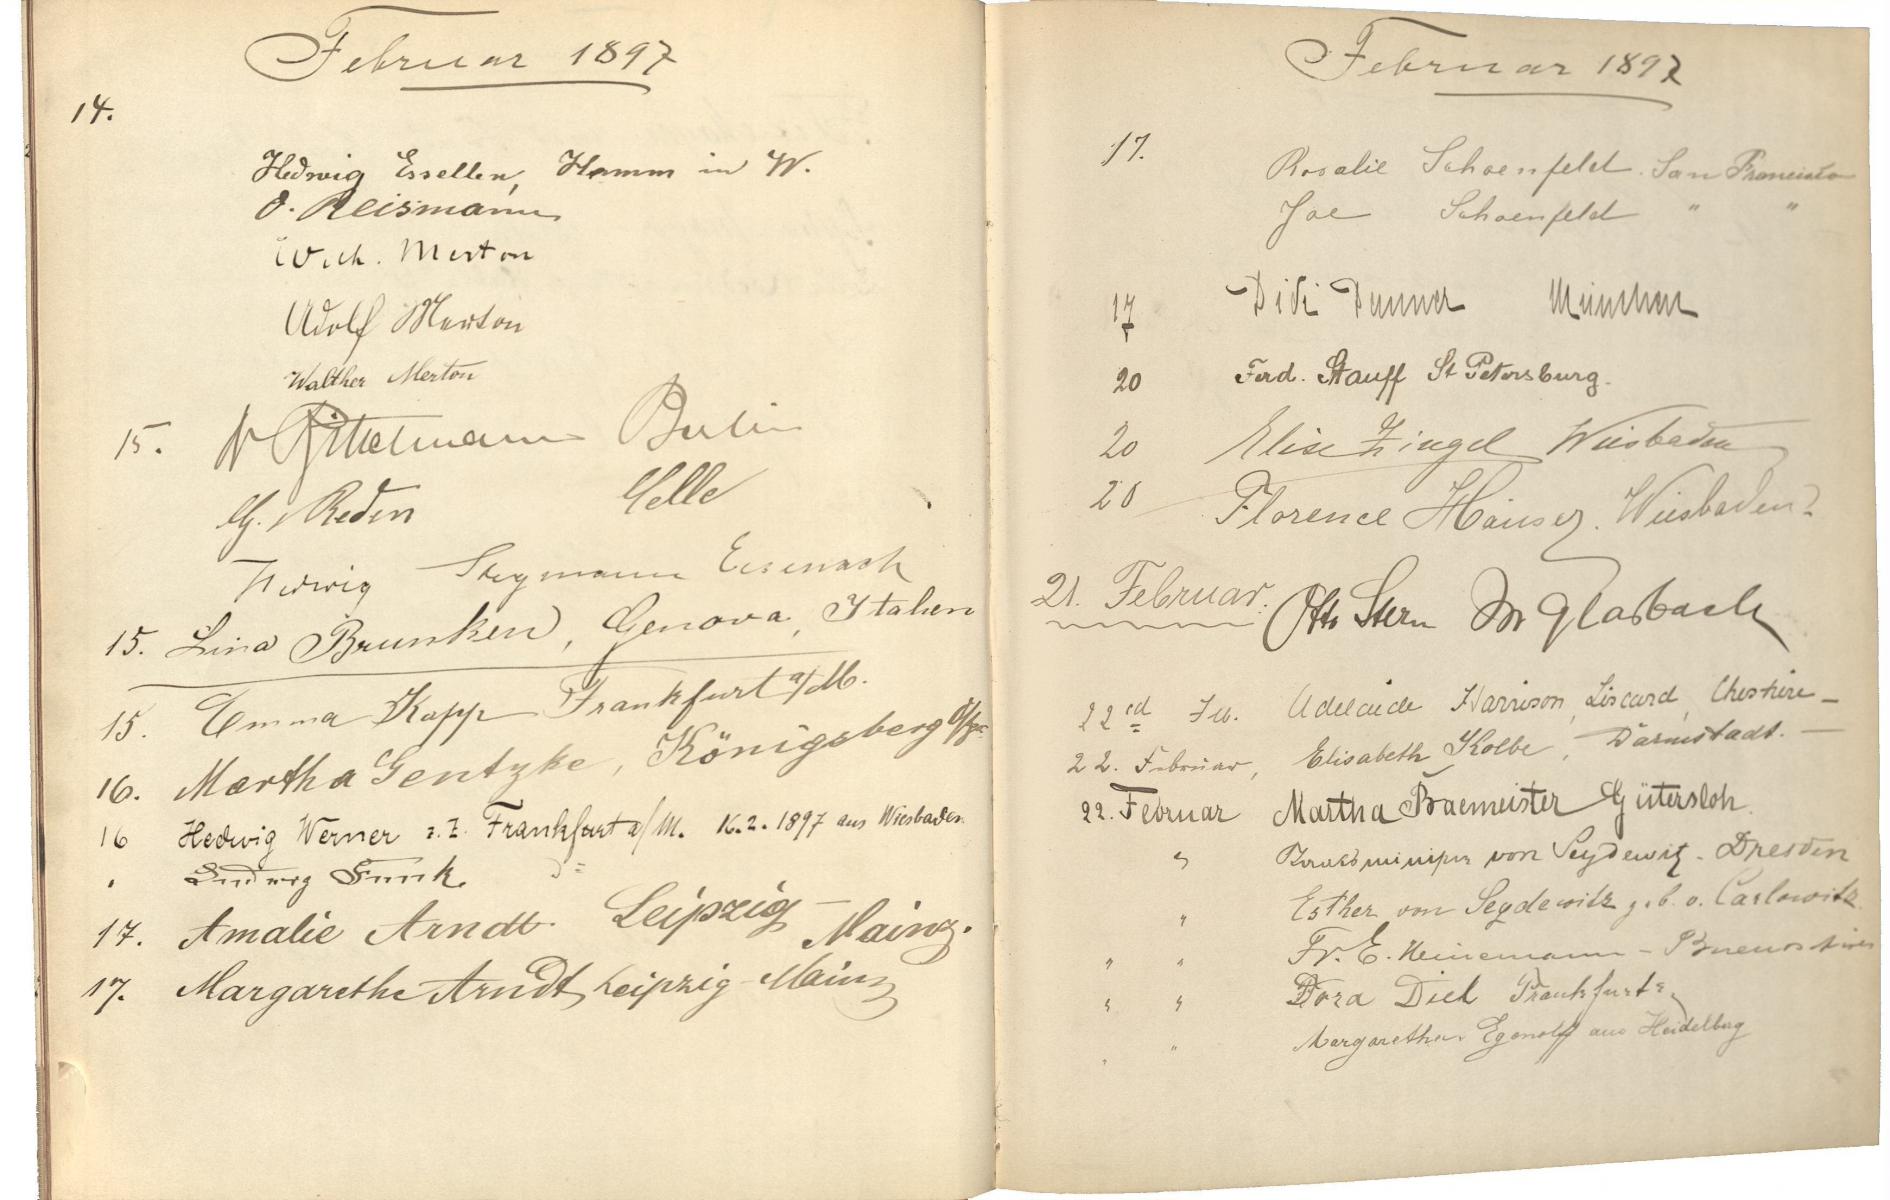 Februar 1897
14.
Hedwig Essellen, Hamm in W.
O. Reismann
Wilh. Merton
Adolf Merton
Walther Merton
15. Berlin
G. v Reden Celle
Hedwig Stegmann Eisenach
15. Lina Brunken, Genova, Italien
15. Emma Kapp Frankfurt a/M.
16. Martha Gentzke, Königsberg
16 Hedwig Werner z. Z. Frankfurt a/M. 16.2.1897 aus Wiesbaden
Ludwig Funk.
17. Amalie Arndt. Leipzig - Mainz.
17. Margarethe Arndt, Leipzig - Mainz
Februar 1897
17. Rosalie Schoenfeldt. San Francisco
Joe Schoenfeldt " "
17 Didi Danner München
20 Ferd. Stauff St Petersburg.
20 Elise Zingel Wiesbaden
20 Florence Hauser. Wiesbaden.
21. Februar. Otto Stern M Glasbach
22ed Feb. Adelaide Harrison, Liscard, Cheshire -
22. Februar, Elisabeth Kolbe, Darmstadt. -
22. Februar Martha Baemeister Gütersloh.
" von Seydewitz. Dresden
" Esther von Seydewitz geb. v. Carlowitz.
" " Fr. E. Heinemann - Buenos Aires
" " Dora Diel Frankfurt
" " Margaretha Egenolf aus Heidelberg